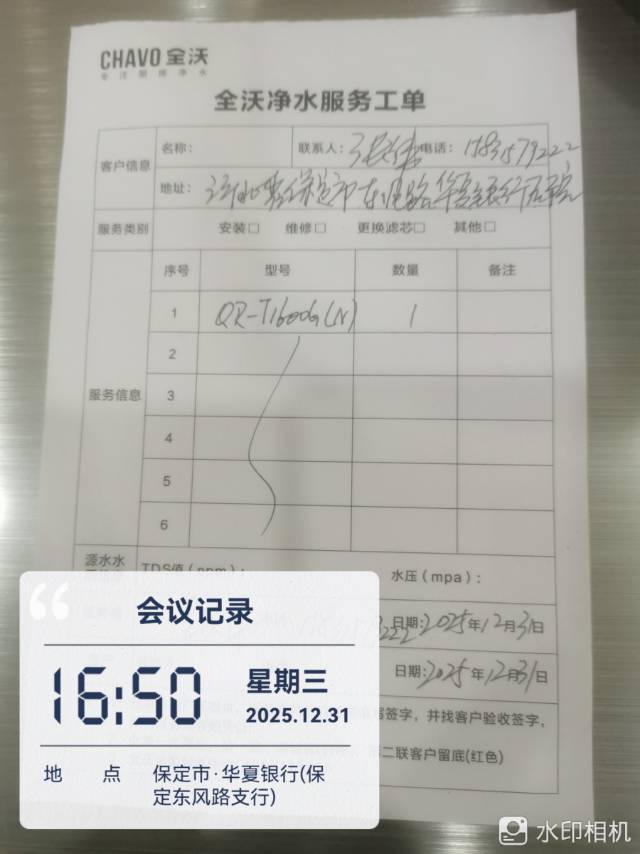 CHAVO 全沃
专注厨房净水
全沃净水服务工单
客户信息
名称：
联系人：
电话：
地址：
服务类别 安装□ 维修□ 更换滤芯□ 其他□
服务信息
序号 型号 数量 备注
1 QR-T1600G(N) 1
2
3
4
5
6
源水水
TDS值（ppm）：
水压（mpa）：
日期：2025年12月31日
日期：2025年12月31日
签字，并找客户验收签字，
二联客户留底(红色)
会议记录
16:50
星期三
2025.12.31
地 点 保定市·华夏银行(保
定东风路支行)
水印相机